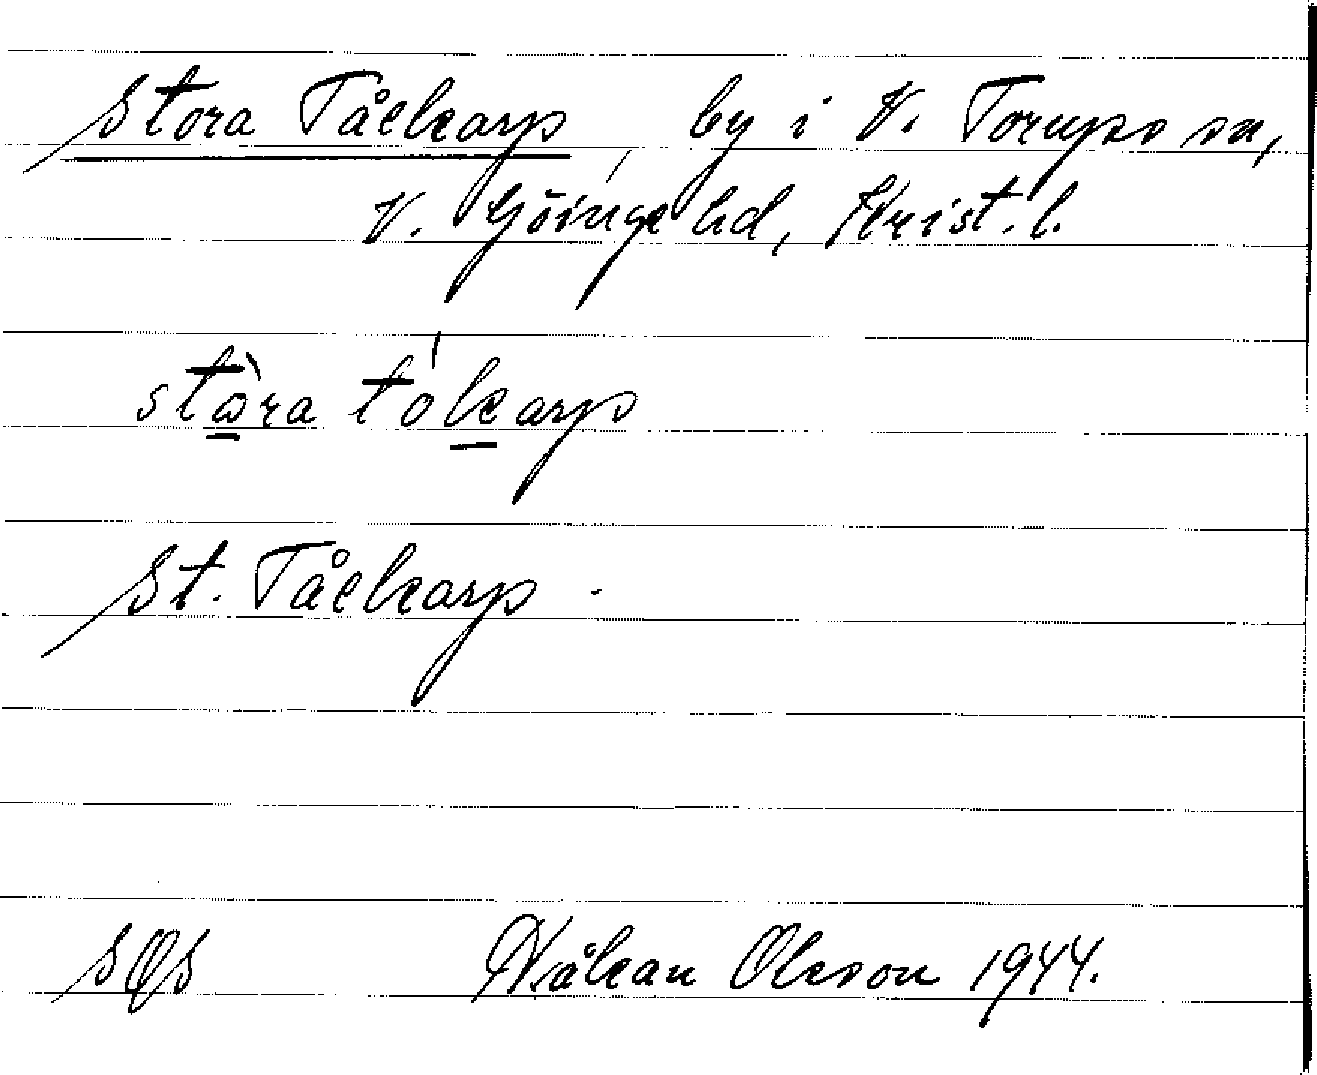 Stora Tåckarp, by i V. Torups sn,
V. Göinge hd, Krist. l.
stòra tókarp
St. Tåckarp.
SOS Håkan Olsson 1944.